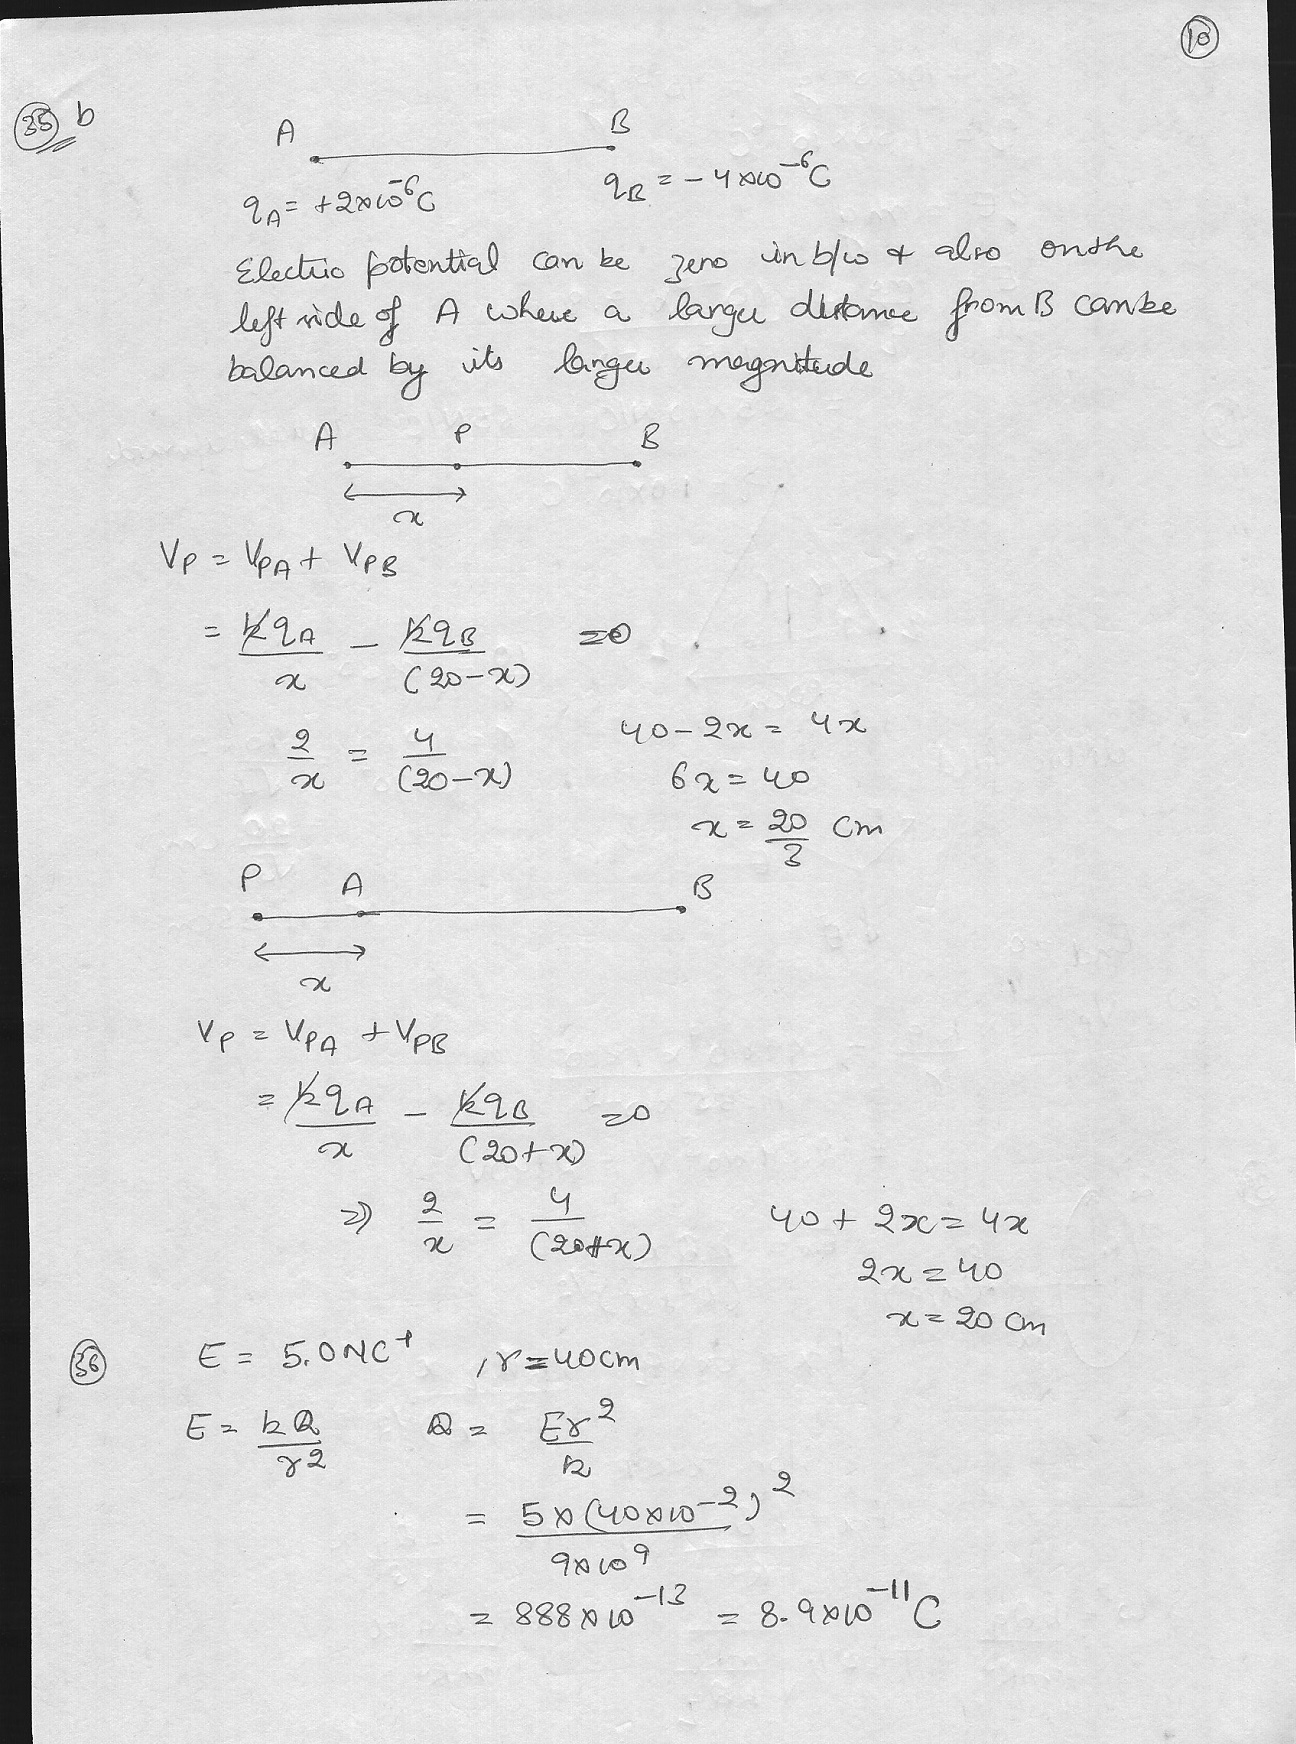 10
35 b
A B
qA = +2×10⁻⁶C qB = -4×10⁻⁶C
Electric potential can be zero in b/w & also on the
left side of A where a larger distance from B can be
balanced by its larger magnitude
A P B
x
VP = VPA + VPB
= kqA/x - kqB/(20-x) = 0
2/x = 4/(20-x) 40-2x = 4x
6x = 40
x = 20/3 cm
P A B
x
VP = VPA + VPB
= kqA/x - kqB/(20+x) = 0
⇒ 2/x = 4/(20+x) 40 + 2x = 4x
2x = 40
x = 20 cm
36 E = 5.0 NC⁻¹ , r = 40cm
E = kQ/r² Q = Er²/k
= 5×(40×10⁻²)²/9×10⁹
= 888×10⁻¹³ = 8.9×10⁻¹¹C